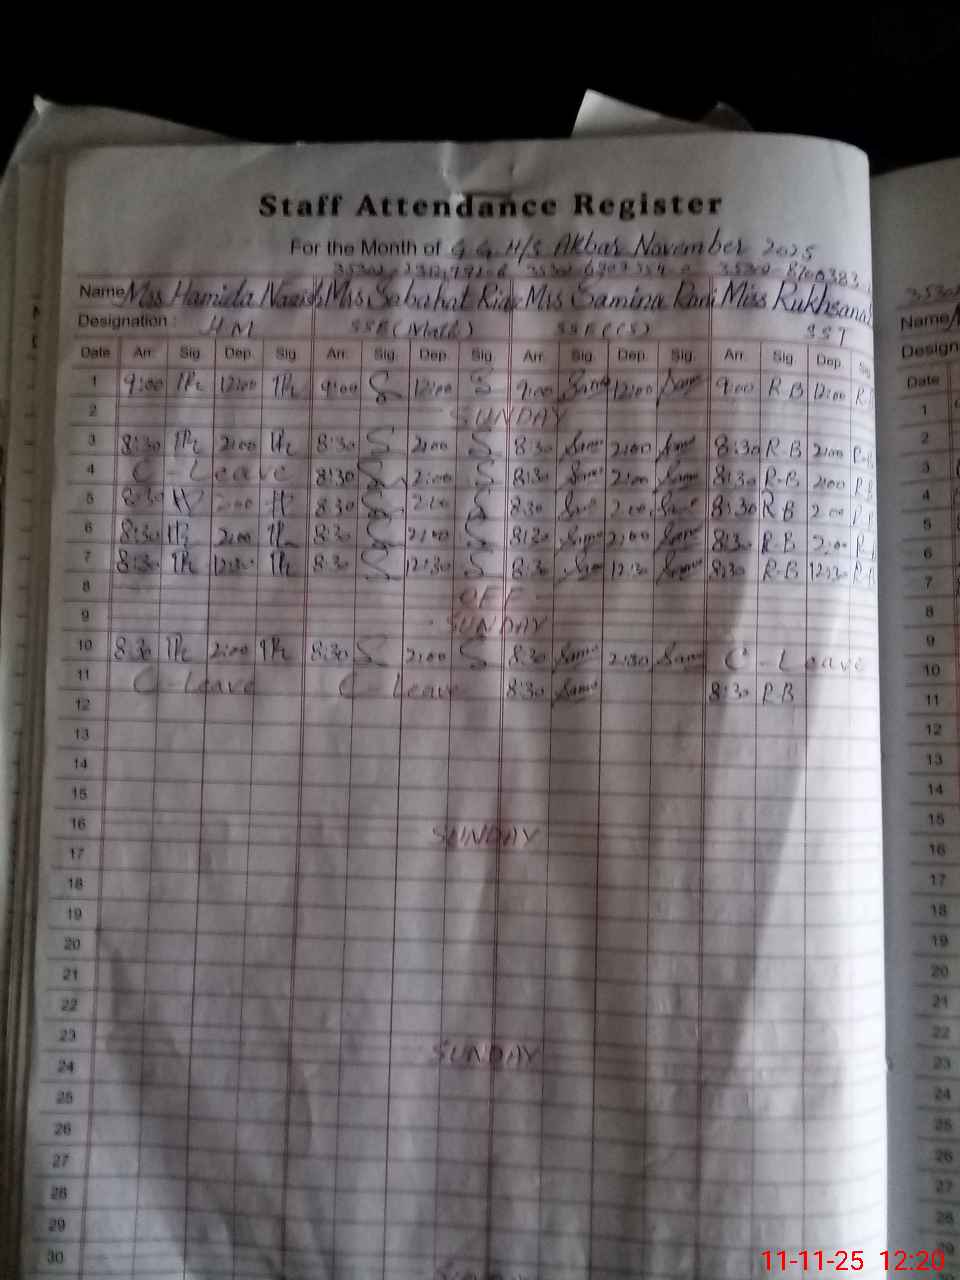 Staff Attendance Register
For the Month of G.G.H/S Akbar November 2025
Name Mrs Hamida Mrs Sabahat Riaz Mrs Samina Rani Miss Rukhsana
Designation : HM SSE (Math) SSE (CS) SST
Date Arr. Sig. Dep. Sig. Arr. Sig. Dep. Sig. Arr. Sig. Dep. Sig. Arr. Sig. Dep. Sig
1 9:00 12:00 9:00 S 12:00 S 9:00 Sam 12:00 Sam 9:00 R B 12:00 R B
2 SUNDAY
3 8:30 2:00 8:30 S 2:00 S 8:30 Sam 2:00 Sam 8:30 R-B 2:00 R-B
4 C - Leave 8:30 S 2:00 S 8:30 Sam 2:00 Sam 8:30 R-B 2:00 R B
5 8:30 2:00 8:30 S 2:00 S 8:30 Sam 2:00 Sam 8:30 R B 2:00
6 8:30 2:00 8:30 S 2:00 S 8:30 Sam 2:00 Sam 8:30 R-B 2:00
7 8:30 12:30 8:30 S 12:30 S 8:30 Sam 12:30 Sam 8:30 R-B 12:30
8 OFF
9 SUNDAY
10 8:30 2:00 8:30 S 2:00 S 8:30 Sam 2:30 Sam C - Leave
11 C - Leave C - Leave 8:30 Sam 8:30 R B
12
13
14
15
16 SUNDAY
17
18
19
20
21
22
23 SUNDAY
24
25
26
27
28
29
30
Name
Design
Date
1
2
3
4
5
6
7
8
9
10
11
12
13
14
15
16
17
18
19
20
21
22
23
24
25
26
27
28
29
11-11-25 12:20